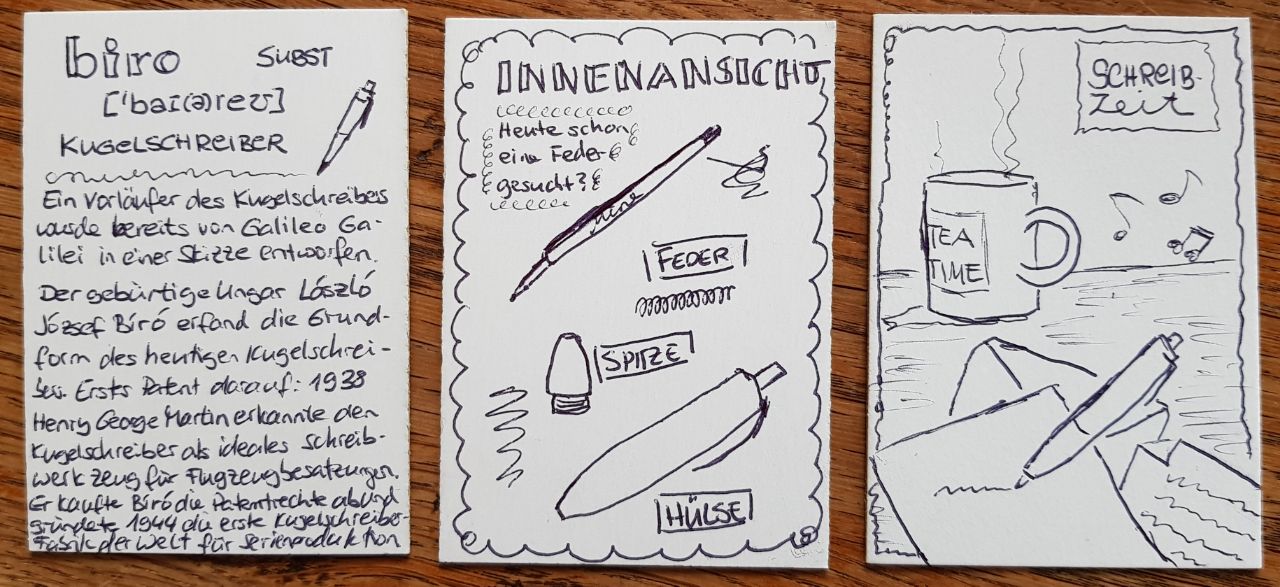 biro SUBST
['baɪ(ə)reʊ]
KUGELSCHREIBER
Ein Vorläufer des Kugelschreibers
wurde bereits von Galileo Ga-
lilei in einer Skizze entworfen.
Der gebürtige Ungar László
József Bíró erfand die Grund-
form des heutigen Kugelschrei-
bers. Erstes Patent darauf: 1938
Henry George Martin erkannte den
Kugelschreiber als ideales Schreib-
werkzeug für Flugzeugbesatzungen.
Er kaufte Bíró die Patentrechte ab und
gründete 1944 die erste Kugelschreiber-
Fabrik der Welt für Serienproduktion
INNENANSICHT
Heute schon
eine Feder
gesucht?
FEDER
SPITZE
HÜLSE
SCHREIB-
Zeit
TEA
TIME